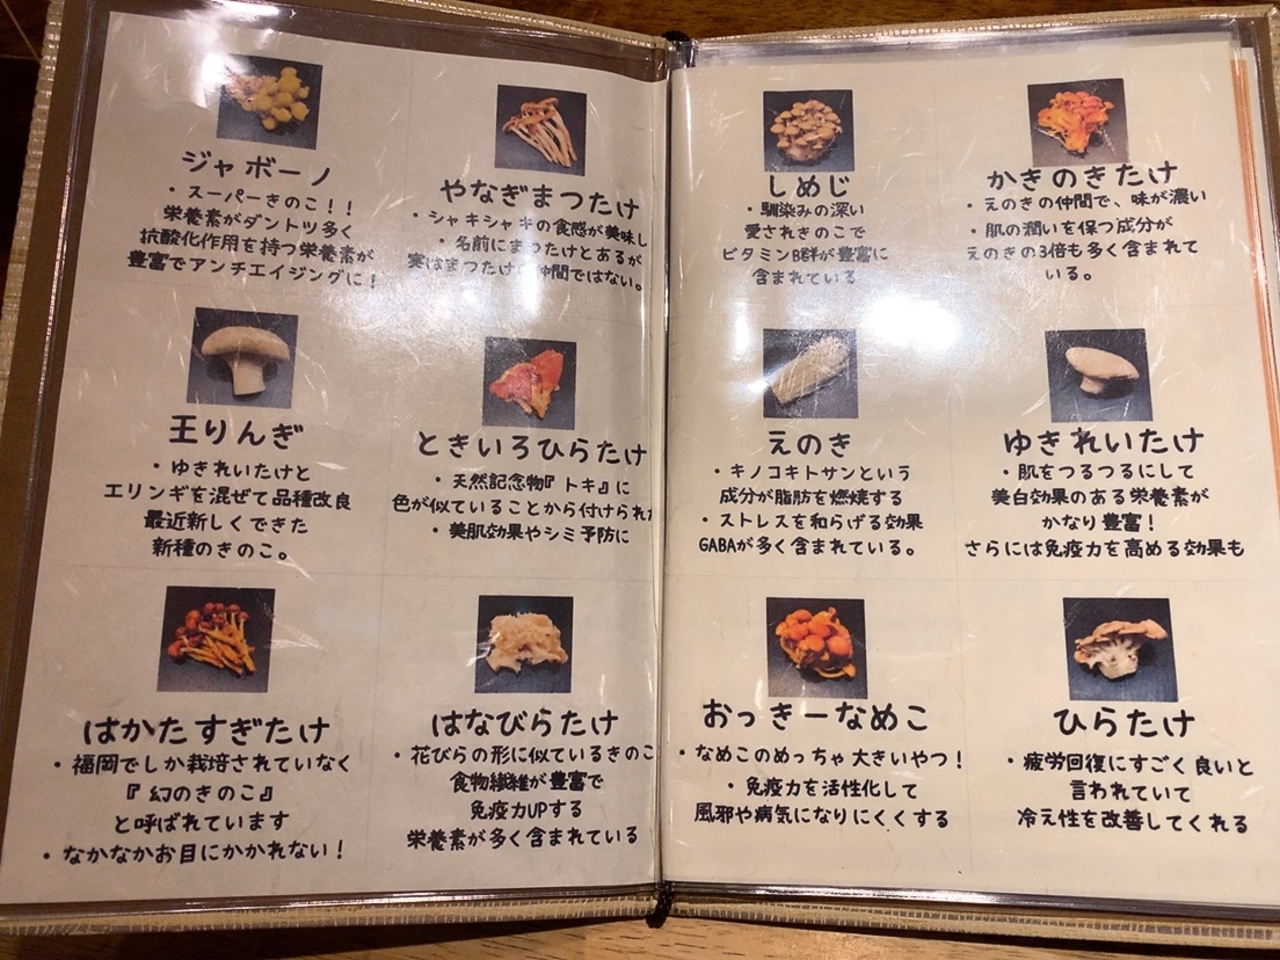 ジャボーノ
・スーパーきのこ！！
栄養素がダントツ多く
抗酸化作用を持つ栄養素が
豊富でアンチエイジングに！
やなぎまつたけ
・シャキシャキの食感が美味し
・名前にまつたけとあるが
実はまつたけの仲間ではない。
王りんぎ
・ゆきれいたけと
エリンギを混ぜて品種改良
最近新しくできた
新種のきのこ。
ときいろひらたけ
・天然記念物『トキ』に
色が似ていることから付けられた
・美肌効果やシミ予防に
はかたすぎたけ
・福岡でしか栽培されていなく
『幻のきのこ』
と呼ばれています
・なかなかお目にかかれない！
はなびらたけ
・花びらの形に似ているきのこ
食物繊維が豊富で
免疫力UPする
栄養素が多く含まれている
しめじ
・馴染みの深い
愛されきのこで
ビタミンB群が豊富に
含まれている
かきのきたけ
・えのきの仲間で、味が濃い
・肌の潤いを保つ成分が
えのきの3倍も多く含まれて
いる。
えのき
・キノコキトサンという
成分が脂肪を燃焼する
・ストレスを和らげる効果
GABAが多く含まれている。
ゆきれいたけ
・肌をつるつるにして
美白効果のある栄養素が
かなり豊富！
さらには免疫力を高める効果も
おっきーなめこ
・なめこのめっちゃ大きいやつ！
・免疫力を活性化して
風邪や病気になりにくくする
ひらたけ
・疲労回復にすごく良いと
言われていて
冷え性を改善してくれる